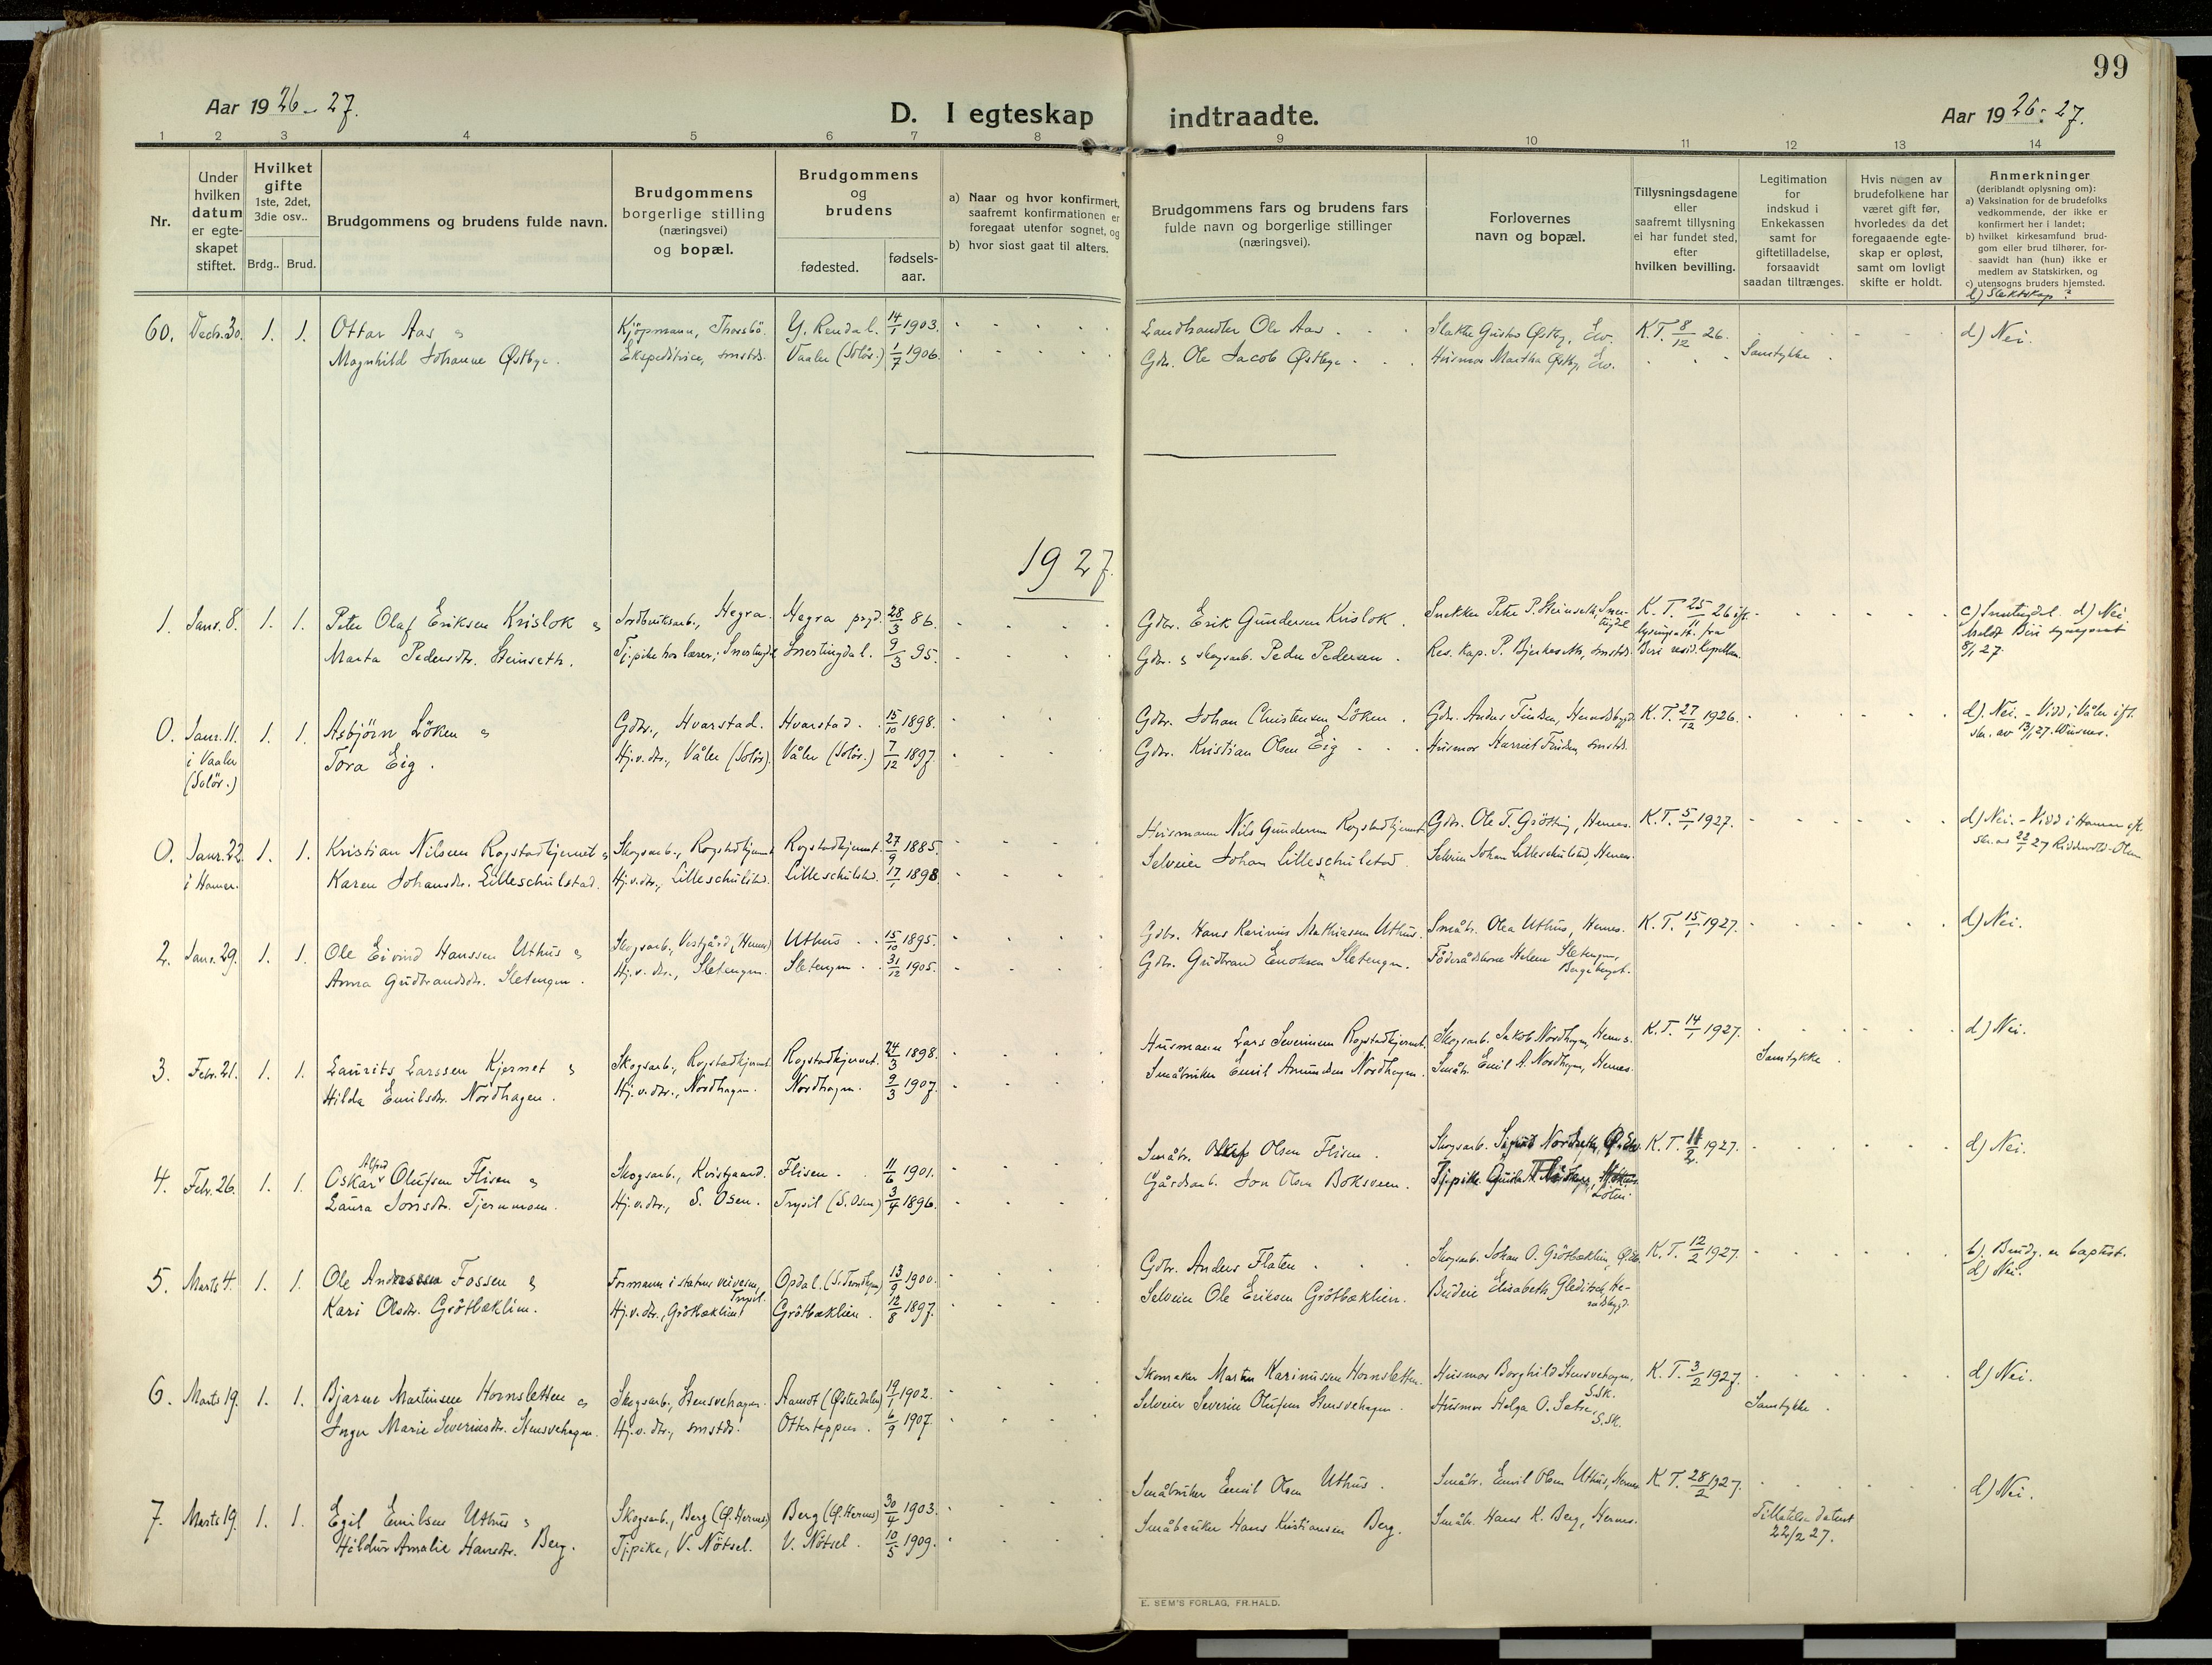 99
Aar 1926-27.
D. I egteskap indtraadte.
Aar 1926-27.
1 2 3 4 5 6 7 8 9 10 11 12 13 14
Nr.
Under hvilken datum er egte-skapet stiftet.
Hvilket gifte 1ste, 2det, 3die osv..
Brdg.. Brud.
Brudgommens og brudens fulde navn.
Brudgommens borgerlige stilling (næringsvei) og bopæl.
Brudgommens og brudens
fødested.
fødsels-aar.
a) Naar og hvor konfirmert, saafremt konfirmationen er foregaat utenfor sognet, og
b) hvor sidst gaat til alters.
Brudgommens fars og brudens fars fulde navn og borgerlige stillinger (næringsvei).
Forlovernes navn og bopæl.
Tillysningsdagene eller saafremt tillysning ei har fundet sted, efter hvilken bevilling.
Legitimation for indskud i Enkekassen samt for giftetilladelse, forsaavidt saadan tiltrænges.
Hvis nogen av brudefolkene har været gift før, hvorledes da det foregaaende egte-skap er opløst, samt om lovligt skifte er holdt.
Anmerkninger
(deriblandt oplysning om):
a) Vaksination for de brudefolks vedkommende, der ikke er konfirmert her i landet;
b) hvilket kirkesamfund brud-gom eller brud tilhører, for-saavidt han (hun) ikke er medlem av Statskirken, og
c) utensogns bruders hjemsted.
d) Slektskap?
60. Decb. 30. 1. 1. Ottar Aas & Kjöpmann, Y. Rendal. 14/1 1903. Landhandler Ole Aas K.T. 8/12 26. d) Nei.
Magnhild Johanne Østbye. Ekspeditrice, smstds. Vaaler (Solör.) 1/7 1906. Gdbr. Ole Jacob Østbye Husmor Martha Østby, Elv. Samtykke.
1927.
1. Janr. 8. 1. 1. Peter Olaf Eriksen Krislok & Jordbruksarb., Hegra. Hegra prgd. 28/3 86. Gdbr. Erik Gundersen Krislok. Snekker Peter P. Steinseth, K.T. 25/11 26 ift. c) Snertingdal. d) Nei.
Marta Pedersdtr. Steinseth. Tj.pike hos lærer, Snertingdal Snertingdal. 9/3 95. Gdbr. & skogsarb. Peder Pedersen. Res. kap. P. smstds. Biri resid. kapellan. 8/1 27.
0. Janr. 11. i Vaaler (Solör.) 1. 1. Asbjörn Löken & Gdbr., Hvarstad. Hvarstad. 15/10 1898. Gdbr. Johan Christensen Löken. K.T. 27/12 1926. d). Nei. - Viet i Våler ift.
Tora Eig. Hj.v.dtr., Våler (Solör). Våler (Solör.) 7/12 1897. Gdbr. Kristian Olsen Eig smstds.
0. Janr. 22. i Hamar. 1. 1. Kristian Nilsen Rogstadkjernet & Skogsarb., Rogstadkjernet Rogstadkjernet. 27/9 1885. Husmann Nils Gundersen Rogstadkjernet. Gdbr. Ole T. Grötting, Hernes. K.T. 5/1 1927. d) Nei. - Viet i Hamar
Karen Johansdtr. Lilleschulstad. Hj.v.dtr., Lilleschulstad. Lilleschulstad. 17/1 1898. Selveier Johan Lilleschulstad. Selveier Johan Lilleschulstad, Hernes.
2. Janr. 29. 1. 1. Ole Eivind Hanssen Uthus & Skogsarb., Vestgård (Hernes) Uthus 15/10 1895. Gdbr. Hans Karinius Mathiassen Uthus. Småbr. Olea Uthus, Hernes. K.T. 15/1 1927. d) Nei.
Anna Gudbrandsdtr. Sletengen. Hj.v.dtr., Sletengen. Sletengen 31/12 1905. Gdbr. Gudbrand Enoksen Sletengen. Föderådskone Helene Sletengen,
3. Febr. 21. 1. 1. Laurits Larssen Kjernet & Skogsarb., Rogstadkjernet. Rogstadkjernet. 24/3 1898. Husmann Lars Severinsen Rogstadkjernet. Skogsarb. Jakob Nordhagen, Hernes. K.T. 14/1 1927. d) Nei.
Hilda Emilsdtr. Nordhagen. Hj.v.dtr., Nordhagen. Nordhagen. 9/3 1907. Småbruker Emil Amundsen Nordhagen. Småbr. Emil A. Nordhagen, Hernes. Samtykke.
4. Febr. 26. 1. 1. Oskar Alfred Olufsen Flisen & Skogsarb., Kvistgaard. Flisen. 11/6 1901. Småbr. Oluf Olsen Flisen. K.T. 11/2 1927. d) Nei.
Laura Jonsdtr. Tjernmoen. Hj.v.dtr., S. Osen. Trysil (S. Osen) 3/4 1896. Gårdsarb. Jon Olsen Boksveen. Tj.pike Löten.
5. Marts 4. 1. 1. Ole Anderssen Fossen & Formann i statens veivesen, Trysil. Opdal. (S. Trondhjem) 13/9 1900. Gdbr. Anders Flaten Skogsarb. Johan O. Grötbæklien K.T. 12/2 1927. b). Brudg. er baptist.
d) Nei.
Kari Olsdtr. Grötbæklien. Hj.v.dtr., Grötbæklien. Grötbæklien. 12/8 1897. Selveier Ole Eriksen Grötbæklien. Budeie Elisabeth Gleditsch, He-radsbygd.
6. Marts 19. 1. 1. Bjarne Martinsen Hornsletten & Skogsarb., Stensvehagen. Aamot (Østerdalen) 19/1 1902. Skomaker Martin Karinussen Hornsletten. Husmor Borghild Stensvehagen, S.Sk. K.T. 3/2 1927. d) Nei.
Inger Marie Severinsdtr. Stensvehagen. Hj.v.dtr., smstds. Otterteppen. 6/9 1907. Selveier Severin Olufsen Stensvehagen. Husmor Helga O. Setre, S.Sk. Samtykke.
7. Marts 19. 1. 1. Egil Emilsen Uthus & Skogsarb., Berg (Ø. Hernes) Berg (Ø. Hernes) 30/4 1903. Småbruker Emil Olsen Uthus. Småbr. Emil Olsen Uthus, Hernes K.T. 28/2 1927. d) Nei.
Hildur Amalie Hansdtr. Berg. Tj.pike, V. Nötsel. V. Nötsel. 10/5 1909. Småbruker Hans Kristiansen Berg. Småbr. Hans K. Berg, Hernes. Tillatelse datert 22/2 27.
E. SEM'S FORLAG, FR.HALD.